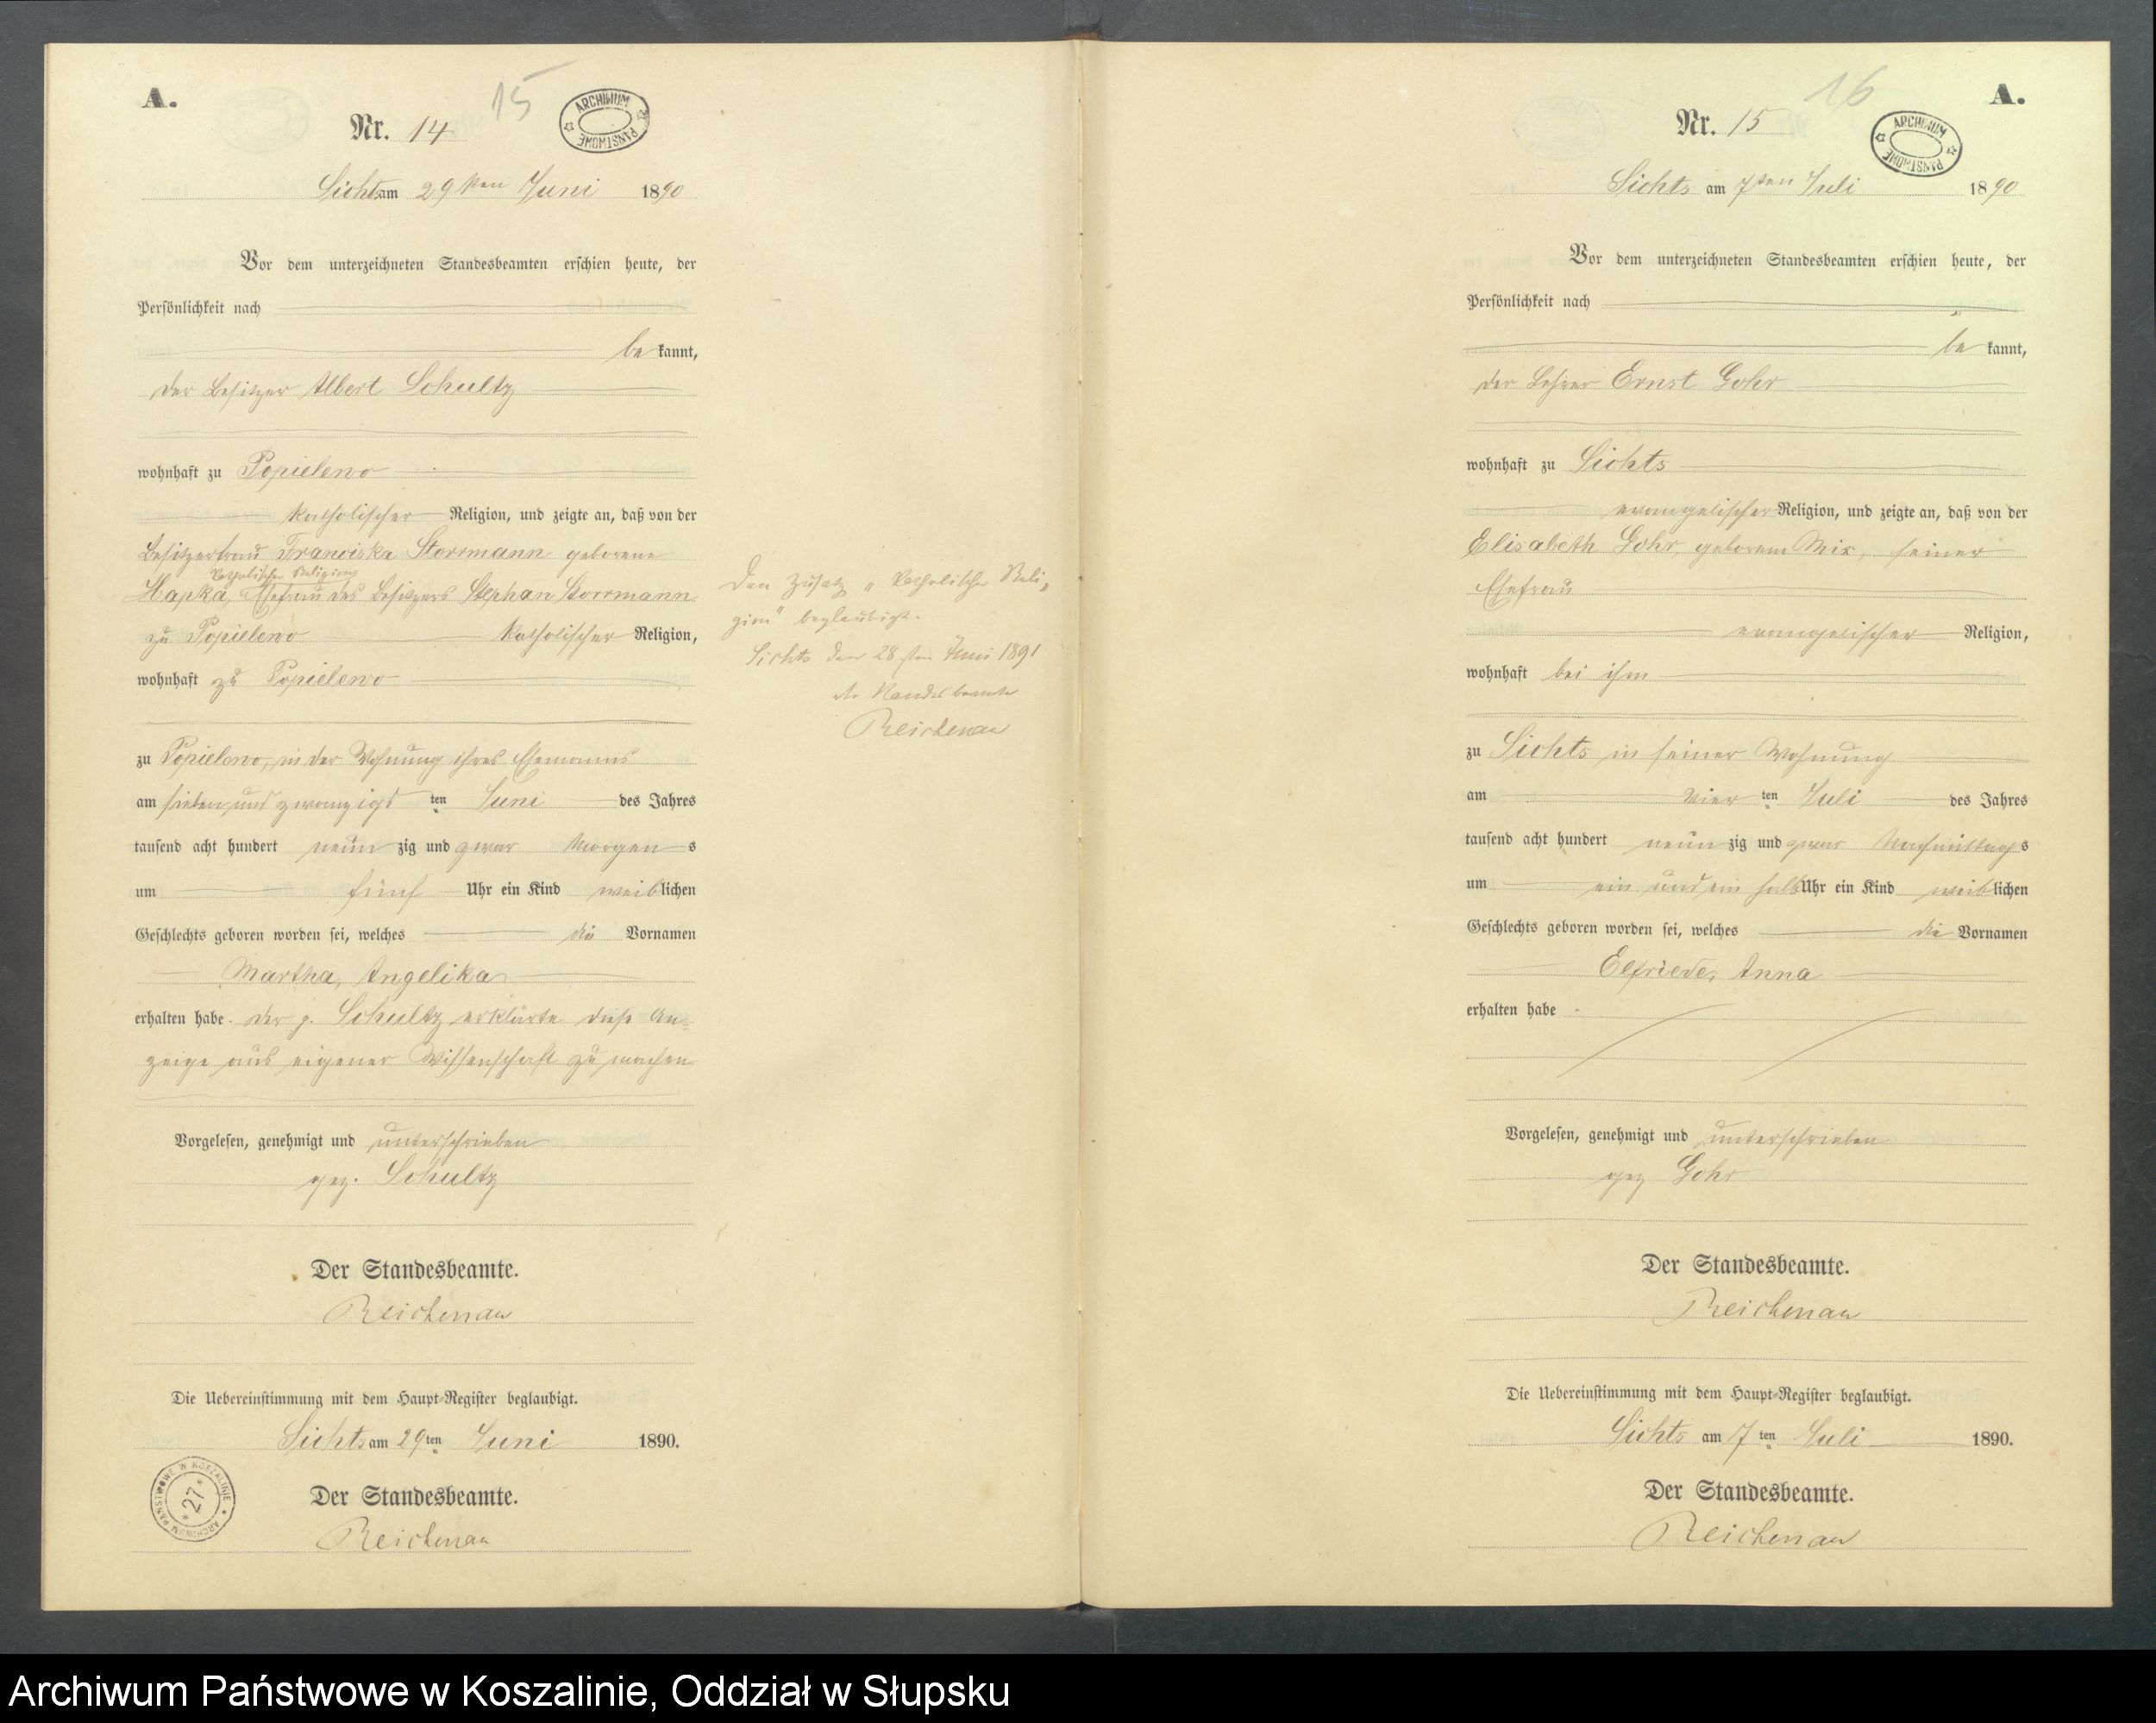 A.
15
Nr. 14
ARCHIWUM PAŃSTWOWE
Lichts am 29ten Juni 1890
Vor dem unterzeichneten Standesbeamten erschien heute, der
Persönlichkeit nach
be kannt,
der Besitzer Albert Schultz
wohnhaft zu Popielewo
katholischer Religion, und zeigte an, daß von der
Besitzerfrau Franciska Storrmann geborene
katholischer Religion
Hapka, Ehefrau des Besitzers Stephan Storrmann
zu Popielewo katholischer Religion,
wohnhaft zu Popielewo
zu Popielewo, in der Wohnung ihres Ehemanns
am sieben und zwanzigs ten Juni des Jahres
tausend acht hundert neun zig und zwar Morgen s
um fünf Uhr ein Kind weib lichen
Geschlechts geboren worden sei, welches die Vornamen
Martha, Angelika
erhalten habe. Der p. Schultz erklärte diese An-
zeige aus eigener Wissenschaft zu machen
Vorgelesen, genehmigt und unterschrieben
gez. Schultz
Der Standesbeamte.
Reichenau
Die Uebereinstimmung mit dem Haupt-Register beglaubigt.
Lichts am 29 ten Juni 1890.
Der Standesbeamte.
Reichenau
ARCHIWUM PAŃSTWOWE W KOSZALINIE * 27 *
Den Zusatz „katholischer Reli-
gion" beglaubigt.
Lichts den 28sten Juni 1891
Der Standesbeamte
Reichenau
16
A.
Nr. 15
ARCHIWUM PAŃSTWOWE
Lichts am 7ten Juli 1890
Vor dem unterzeichneten Standesbeamten erschien heute, der
Persönlichkeit nach
be kannt,
der Lehrer Ernst Gohr
wohnhaft zu Lichts
evangelischer Religion, und zeigte an, daß von der
Elisabeth Gohr, geborene Mix, seiner
Ehefrau
evangelischer Religion,
wohnhaft bei ihm
zu Lichts in seiner Wohnung
am vier ten Juli des Jahres
tausend acht hundert neun zig und zwar Nachmittag s
um ein und ein halb Uhr ein Kind weib lichen
Geschlechts geboren worden sei, welches die Vornamen
Elfriede, Anna
erhalten habe
Vorgelesen, genehmigt und unterschrieben
gez Gohr
Der Standesbeamte.
Reichenau
Die Uebereinstimmung mit dem Haupt-Register beglaubigt.
Lichts am 7 ten Juli 1890.
Der Standesbeamte.
Reichenau
Archiwum Państwowe w Koszalinie, Oddział w Słupsku